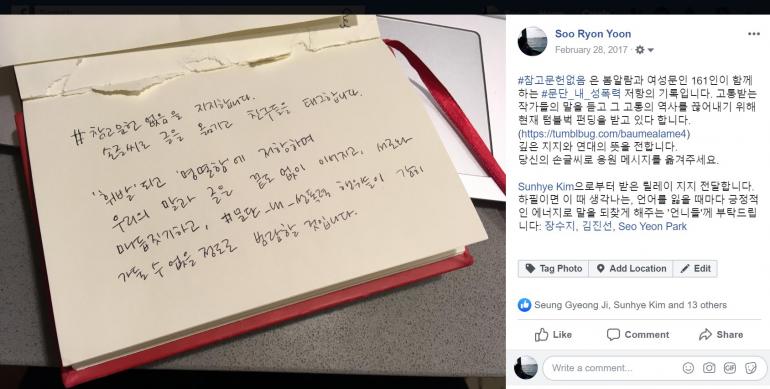 #참고문헌 없음을 지지합니다.
손글씨로 글을 옮기고 친구들을 태그합니다.
'휘발'되고 '멸렬함'에 저항하며
우리의 말과 글은 끝도 없이 이어지고, 서로와
매듭짓기하고, #문단_내_성폭력 해쉬들이 감히
가둘 수 없을 정도로 범람할 것입니다.
Soo Ryon Yoon
February 28, 2017
#참고문헌없음 은 봄알람과 여성문인 161인이 함께
하는 #문단_내_성폭력 저항의 기록입니다. 고통받는
작가들의 말을 듣고 그 고통의 역사를 끊어내기 위해
현재 텀블벅 펀딩을 받고 있다 합니다.
(https://tumblbug.com/baumealame4)
깊은 지지와 연대의 뜻을 전합니다.
당신의 손글씨로 응원 메시지를 옮겨주세요.
Sunhye Kim으로부터 받은 릴레이 지지 전달합니다.
하필이면 이 때 생각나는, 언어를 잃을 때마다 긍정적
인 에너지로 말을 되찾게 해주는 '언니들'께 부탁드립
니다: 장수지, 김진선, Seo Yeon Park
Tag Photo
Add Location
Edit
Seung Gyeong Ji, Sunhye Kim and 13 others
Like
Comment
Share
Write a comment...
GIF